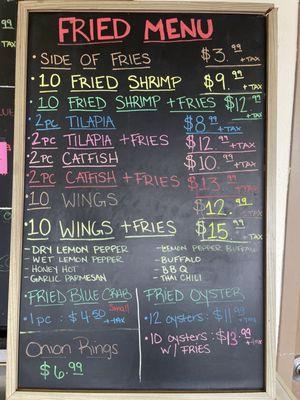 FRIED MENU
• SIDE OF FRIES $3.99 +TAX
• 10 FRIED SHRIMP $9.99 +TAX
• 10 FRIED SHRIMP + FRIES $12.99 +TAX
• 2pc TILAPIA $8.99 +TAX
• 2pc TILAPIA + FRIES $12.99 +TAX
• 2pc CATFISH $10.99 +TAX
• 2pc CATFISH + FRIES $13.99 +TAX
• 10 WINGS $12.99 +TAX
• 10 WINGS + FRIES $15.99 +TAX
- DRY LEMON PEPPER
- WET LEMON PEPPER
- HONEY HOT
- GARLIC PARMESAN
- LEMON PEPPER BUFFALO
- BUFFALO
- BBQ
- THAI CHILI
FRIED BLUE CRAB
• 1pc : $4.50 Small +TAX
Onion Rings
$6.99
FRIED OYSTER
• 12 oysters : $11.99 +TAX
• 10 oysters : $13.99 +TAX
W/ FRIES
+TAX